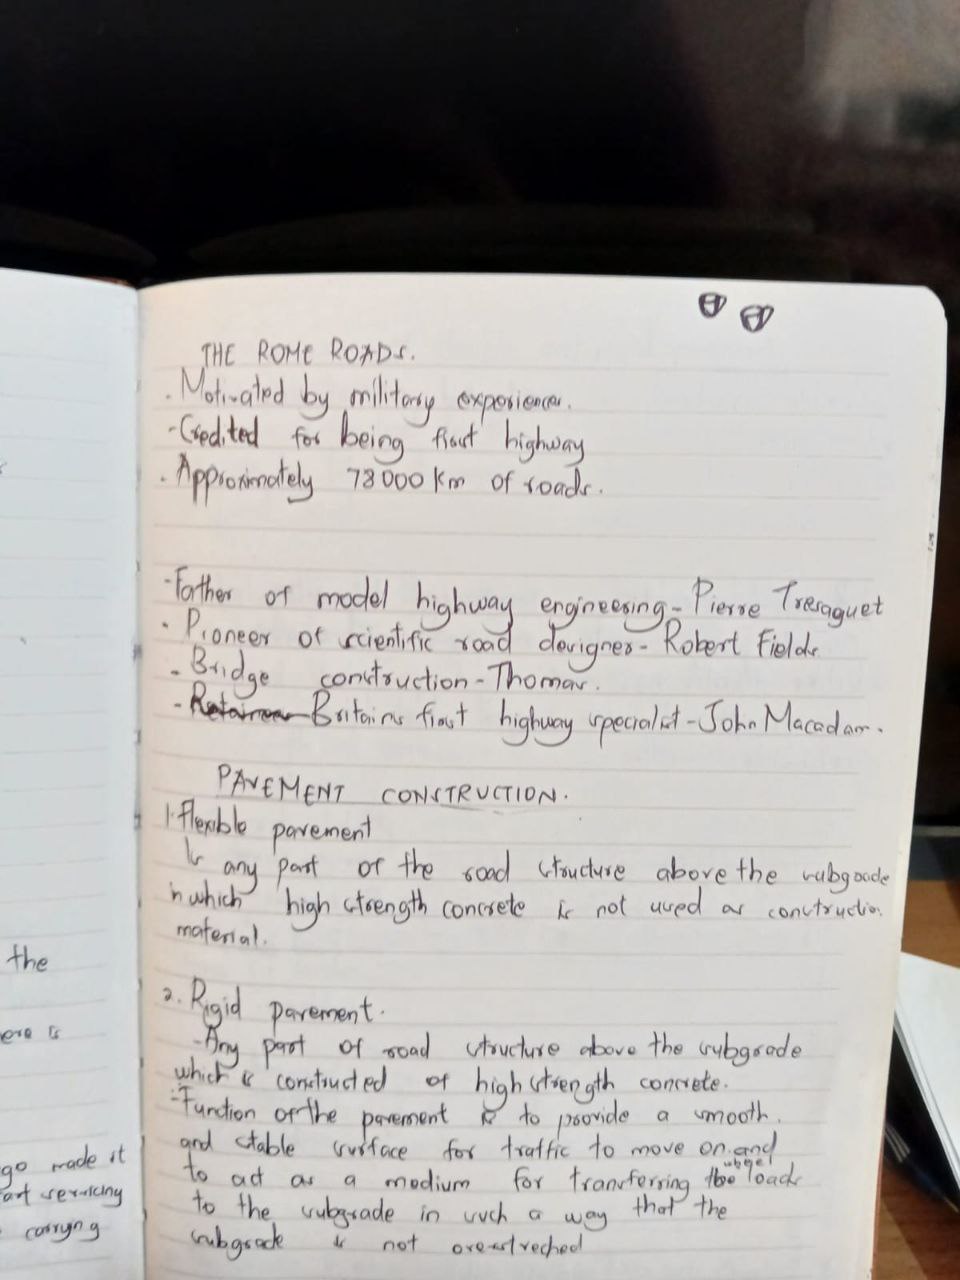 THE ROME ROADS.
. Motivated by military experience.
- Credited for being first highway
. Approximately 78000 Km of roads.
- Father of model highway engineering - Pierre Tresaguet
. Pioneer of scientific road designer - Robert Fields
- Bridge construction - Thomas.
- Britains first highway specialist - John Macadam.
PAVEMENT CONSTRUCTION.
1. Flexible pavement
Is any part of the road structure above the subgrade
in which high strength concrete is not used as constructio
material.
2. Rigid pavement.
- Any part of road structure above the subgrade
which is constructed of high strength concrete.
- Function of the pavement is to provide a smooth
and stable surface for traffic to move on and
to act as a medium for transferring the wheel loads
to the subgrade in such a way that the
subgrade is not overstreched
the
ere is
go made it
art servicing
carryng